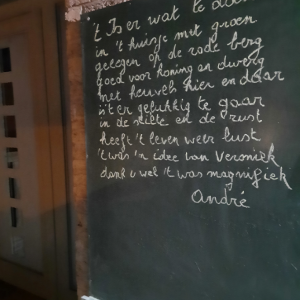 't Is er wat te doen
in 't huisje met groen
gelegen op de rode berg
goed voor koning en dwerg
met heuvels hier en daar
is 't er gelukkig te gaar
in de stilte en de rust
heeft 't leven weer lust
't was 'n idee van Veroniek
dank u wel 't was magnifiek
André